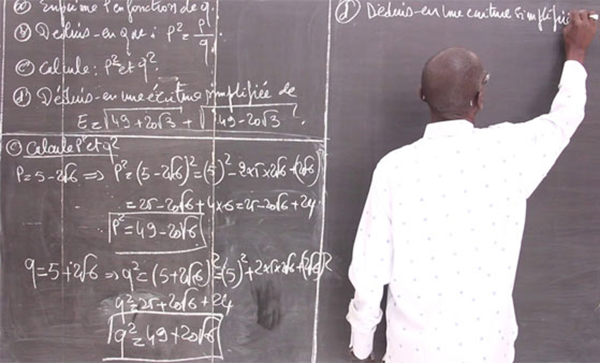 a) Exprime l'en fonction de q.
b) Déduis-en que : P² = P/q.
c) Calcule : P² et q².
d) Déduis-en une écriture simplifiée de
E = √49+20√3 + √49-20√3.
c) Calcule P² et q²
P = 5-2√6 ⟹ P² = (5-2√6)² = (5)² - 2×5×2√6 + (2√6)²
= 25-20√6+4×6 = 25-20√6+24
P² = 49-20√6
q = 5+2√6 ⟹ q² = (5+2√6)² = (5)² + 2×5×2√6 + (2√6)²
q² = 25+20√6+24
q² = 49+20√6
d) Déduis-en une écriture simplifié